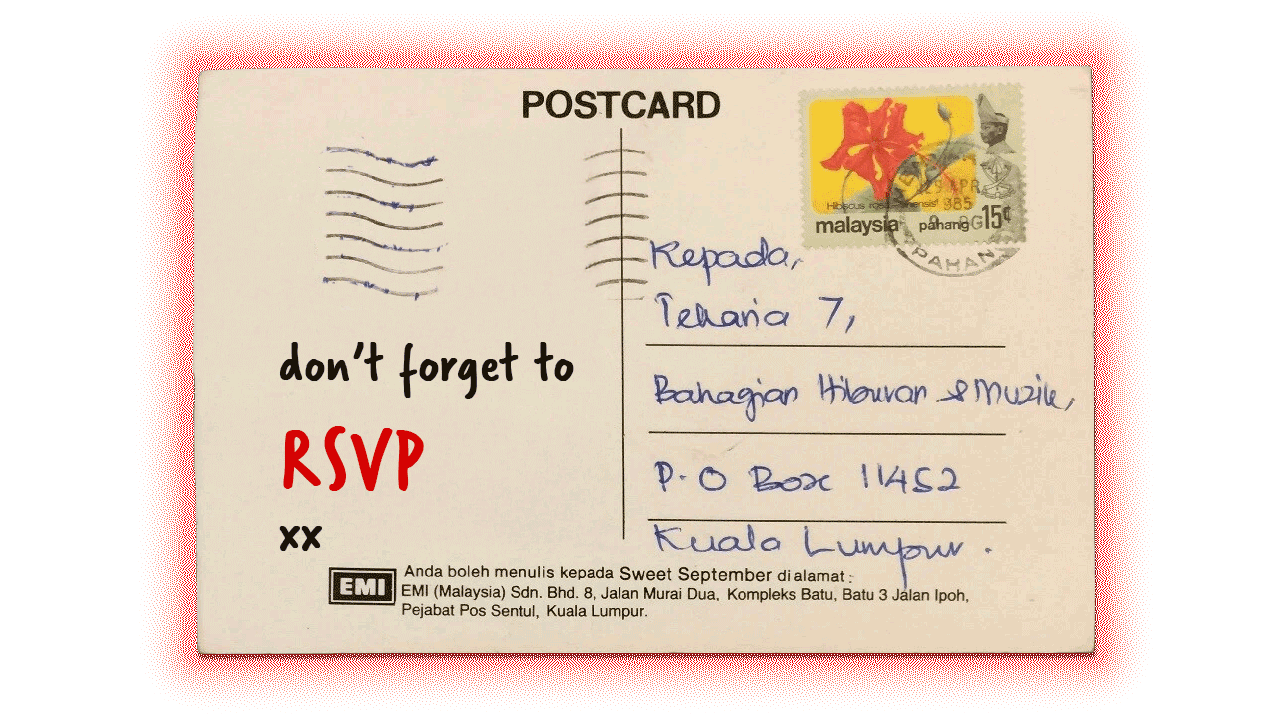 POSTCARD
Hibiscus rosa-sinensis
malaysia pahang 15¢
29 APR
985
PAHAN
Kepada,
Tekaria 7,
Bahagian Hiburan & Muzik,
P.O Box 11452
Kuala Lumpur.
don't forget to
RSVP
xx
EMI
Anda boleh menulis kepada Sweet September di alamat:
EMI (Malaysia) Sdn. Bhd. 8, Jalan Murai Dua, Kompleks Batu, Batu 3 Jalan Ipoh,
Pejabat Pos Sentul, Kuala Lumpur.